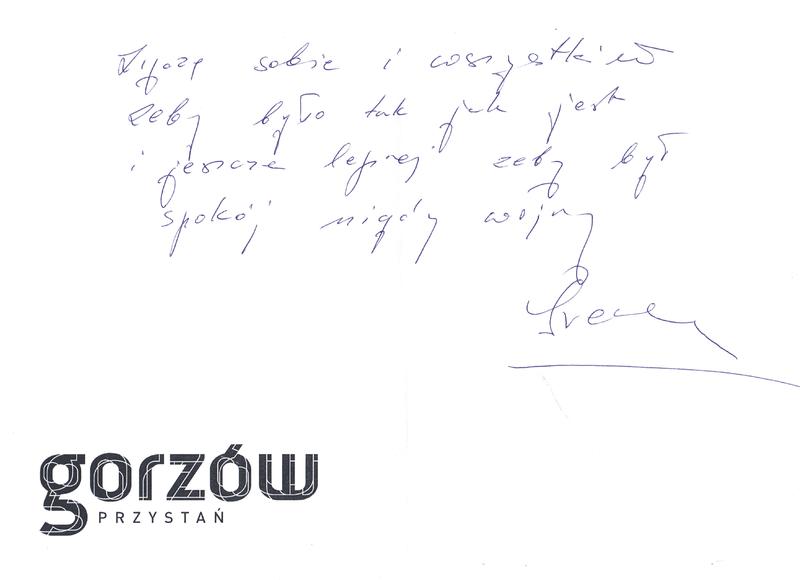 Życzę sobie i wszystkim
żeby było tak jak jest
i jeszcze lepiej żeby był
spokój nigdy wojny
Irena
gorzów
PRZYSTAŃ